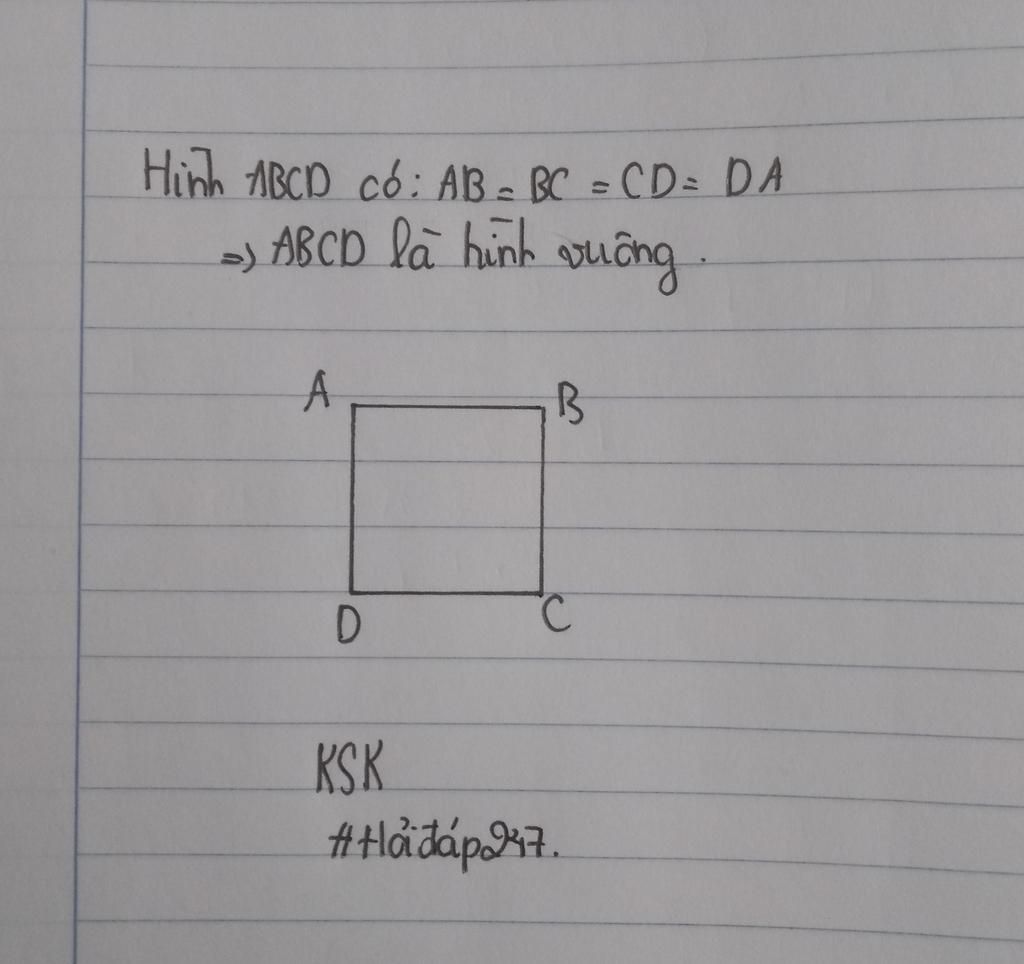 Hình ABCD có: AB = BC = CD = DA
=> ABCD là hình vuông.
A
B
D
C
KSK
#Hỏiđáp247.